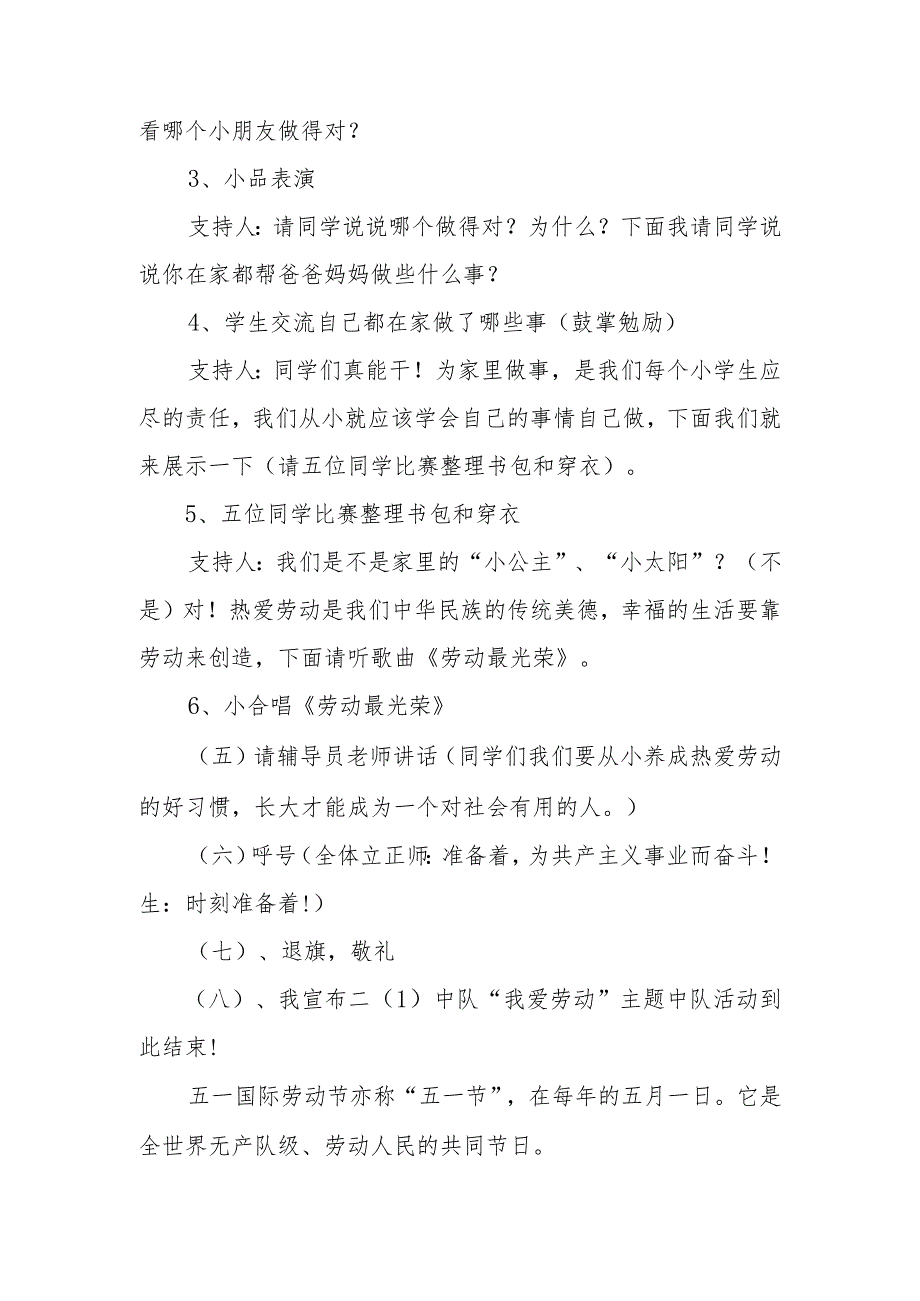 看哪个小朋友做得对？
3、小品表演
支持人：请同学说说哪个做得对？为什么？下面我请同学说
说你在家都帮爸爸妈妈做些什么事？
4、学生交流自己都在家做了哪些事（鼓掌勉励）
支持人：同学们真能干！为家里做事，是我们每个小学生应
尽的责任，我们从小就应该学会自己的事情自己做，下面我们就
来展示一下（请五位同学比赛整理书包和穿衣）。
5、五位同学比赛整理书包和穿衣
支持人：我们是不是家里的“小公主”、“小太阳”？（不
是）对！热爱劳动是我们中华民族的传统美德，幸福的生活要靠
劳动来创造，下面请听歌曲《劳动最光荣》。
6、小合唱《劳动最光荣》
（五）请辅导员老师讲话（同学们我们要从小养成热爱劳动
的好习惯，长大才能成为一个对社会有用的人。）
（六）呼号（全体立正师：准备着，为共产主义事业而奋斗！
生：时刻准备着！）
（七）、退旗，敬礼
（八）、我宣布二（1）中队“我爱劳动”主题中队活动到
此结束！
五一国际劳动节亦称“五一节”，在每年的五月一日。它是
全世界无产队级、劳动人民的共同节日。